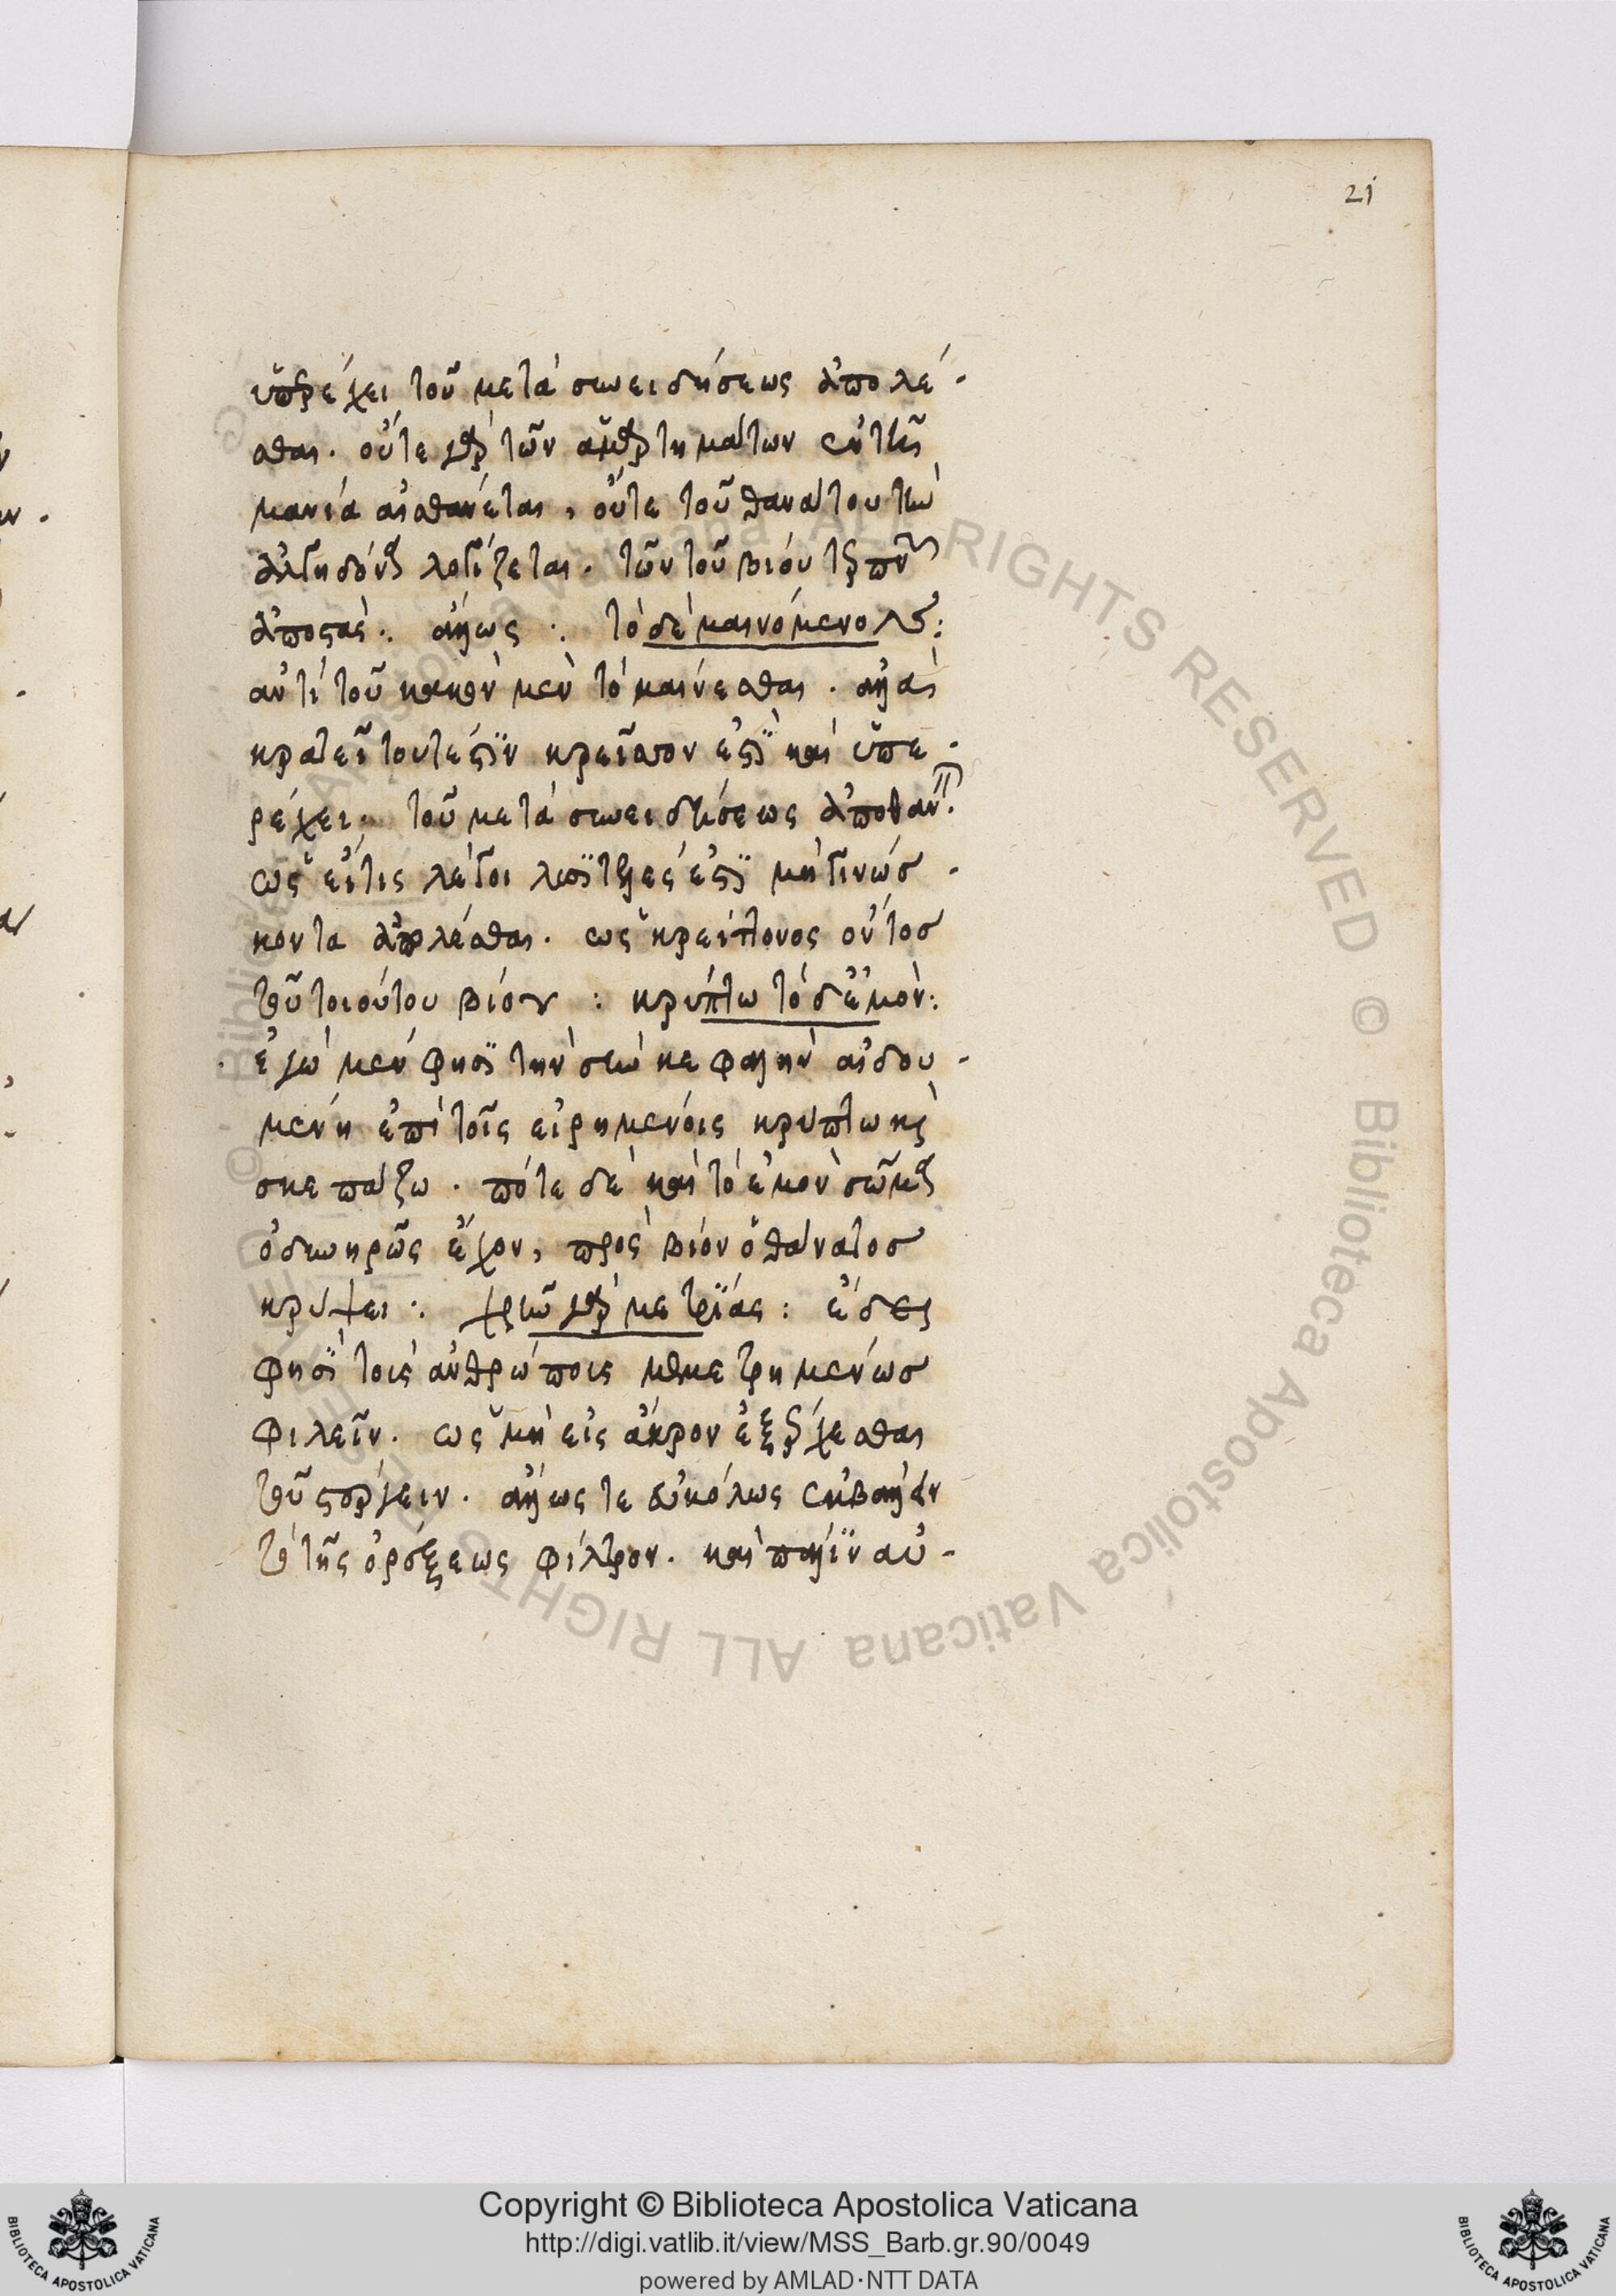 21
ὑπερέχει τοῦ μετὰ συνειδήσεως ἀπολέ-
σθαι. οὔτε γὰρ τῶν ἁμαρτημάτων ἐν τῆ
μανία αἰσθάνεται, οὔτε τοῦ θανάτου τὴν
ἀλγηδόνα λογίζεται. τῶν τοῦ βίου τερπνῶν
ἀποστάς: ἄλλως: τὸ δὲ μαινόμενον:
ἀντὶ τοῦ κακὸν μὲν τὸ μαίνεσθαι. ἀλλὰ
κρατεῖ τουτέστιν κρεῖσσον ἐστὶ καὶ ὑπε-
ρέχει. τοῦ μετὰ συνειδήσεως ἀποθανεῖν.
ὡς εἴτις λέγοι λυσιτελές ἐστι μὴ γινώσ-
κοντα ἀπολέσθαι. ὡς κρείττονος ὄντος
τοῦ τοιούτου βίου: κρύπτω τὸ δ' ἐμὸν:
ἐγὼ μὲν φησὶ τὴν σὴν κεφαλὴν αἰδου-
μένη ἐπὶ τοῖς εἰρημένοις κρύπτω καὶ
σκεπάζω. πότε δὲ καὶ τὸ ἐμὸν σῶμα
ὀδυνηρῶς ἔχον, πρὸς βίον ὁ θάνατος
κρύψει: χρῆν γὰρ μετρίας: ἔδει
φησὶ τοῖς ἀνθρώποις μεμετρημένως
φιλεῖν. ὡς μὴ εἰς ἄκρον ἐξέρχεσθαι
τοῦ στέργειν. ἄλλως τε εὐκόλως ἐκβάλλειν
τὸ τῆς ὀρέξεως φίλτρον. καὶ πάλιν αὐ-
Copyright © Biblioteca Apostolica Vaticana
http://digi.vatlib.it/view/MSS_Barb.gr.90/0049
powered by AMLAD·NTT DATA